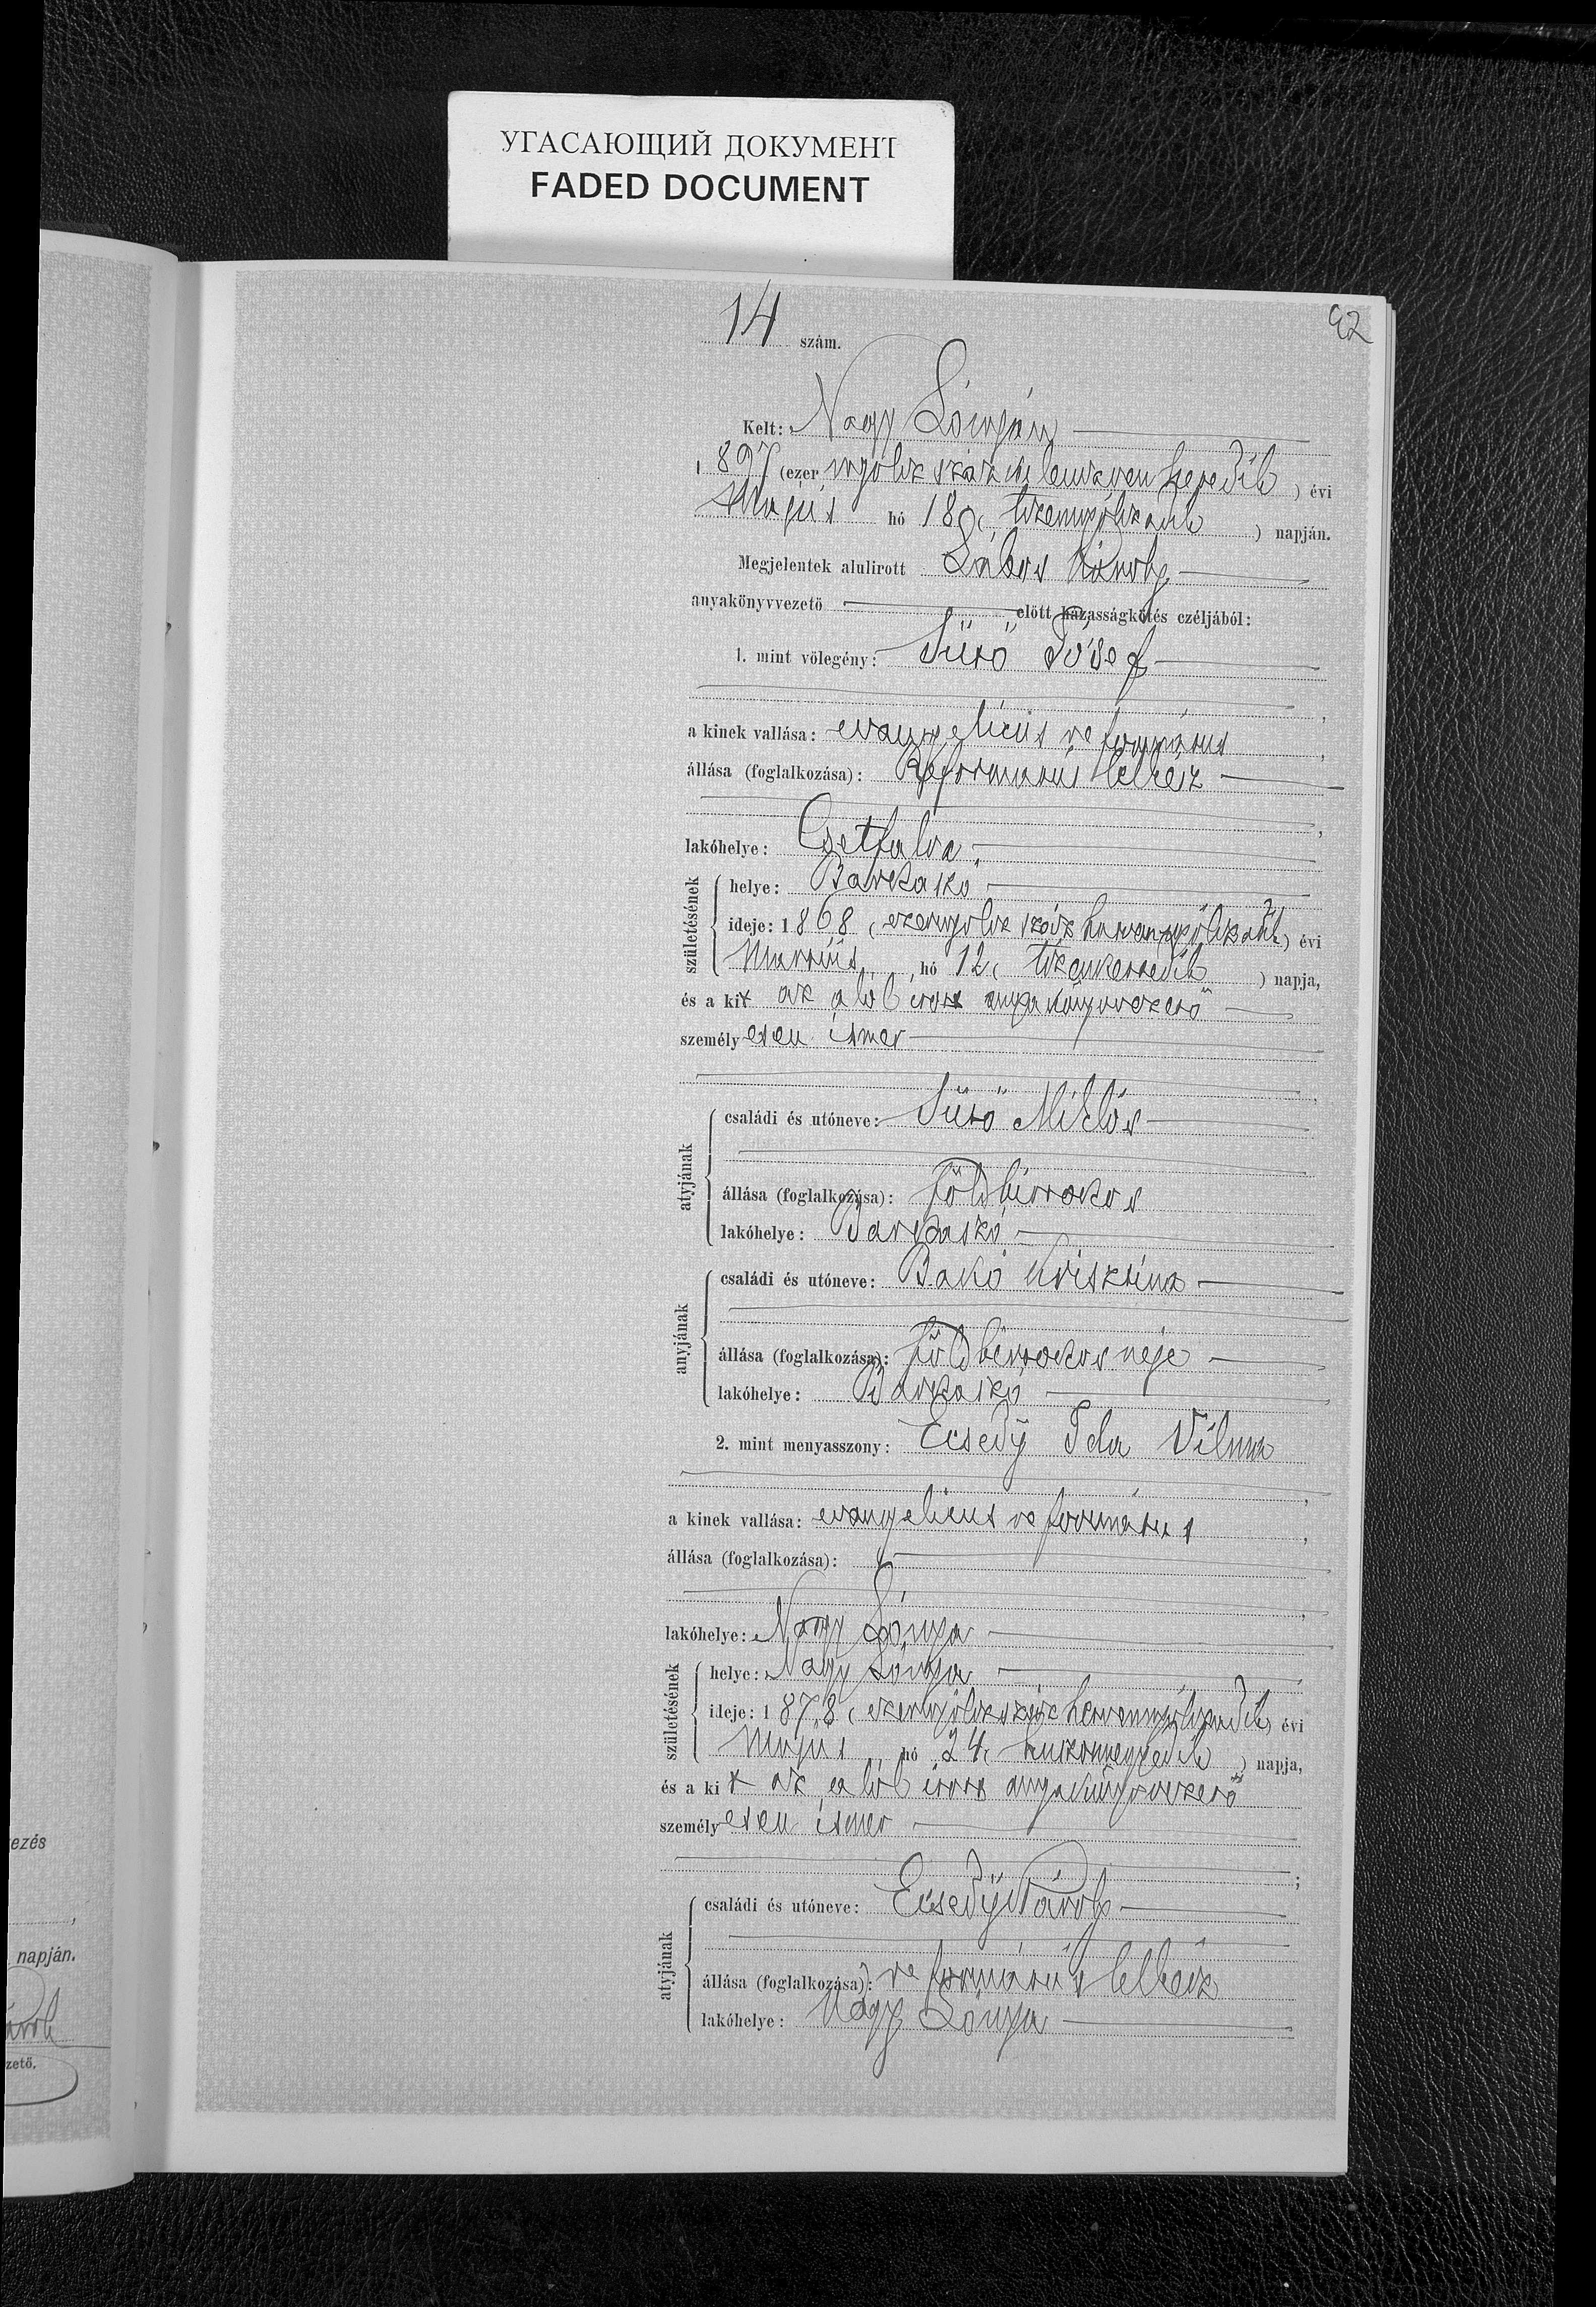 УГАСАЮЩИЙ ДОКУМЕНТ
FADED DOCUMENT
92
14 szám.
Kelt: Nagy Lónyán
1897 (ezer nyolcz száz kilenczven hetedik) évi
Május hó 18 (tizennyolczadik) napján.
Megjelentek alulirott Lábos Károly
anyakönyvvezető előtt házasságkötés czéljából:
1. mint völegény: Sütő József
a kinek vallása: evangelicus református,
állása (foglalkozása): Református lelkész,
lakóhelye: Csetfalva,
születésének
helye: Barkaszó
ideje: 1868 (ezernyolcz száz hatvannyolczadik) évi
Martius hó 12 (tizenkettedik) napja,
és a kit az alól irott anyakönyvvezető
személyesen ismer
atyjának
családi és utóneve: Sütő Miklós
állása (foglalkozása): földbirtokos
lakóhelye: Barkaszó
anyjának
családi és utóneve: Bakó Krisztina
állása (foglalkozása): földbirtokos neje
lakóhelye: Barkaszó
2. mint menyasszony: Ecsedy Ida Vilma
a kinek vallása: evangelicus református,
állása (foglalkozása):
lakóhelye: Nagy Lónya
születésének
helye: Nagy Lónya
ideje: 1878 (ezernyolczszáz hetvennyolczadik) évi
Május hó 24 (huszonnegyedik) napja,
és a kit az alól irott anyakönyvvezető
személyesen ismer
;
atyjának
családi és utóneve: Ecsedy Károly
állása (foglalkozása): református lelkész
lakóhelye: Nagy Lónya
ezés
napján.
ároly
zető.